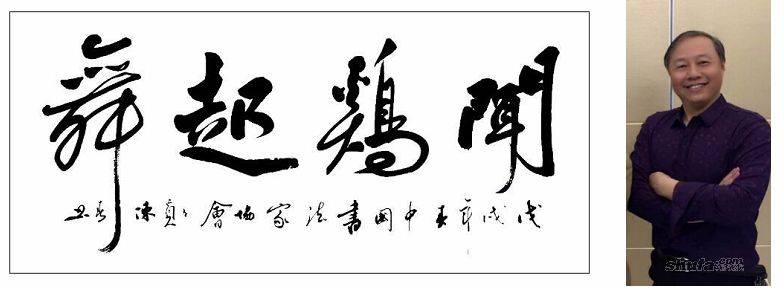 聞鷄起舞
戊戌年中國書法家協會員陳
shufa.com